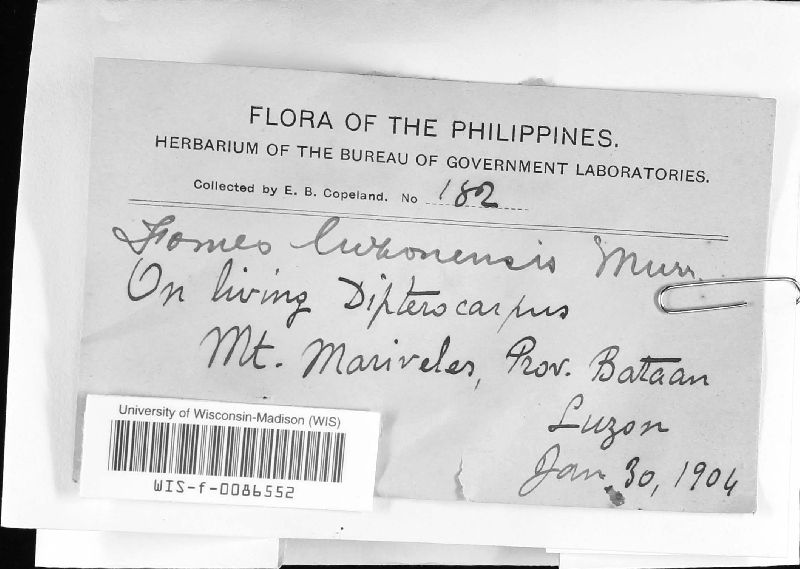 FLORA OF THE PHILIPPINES.
HERBARIUM OF THE BUREAU OF GOVERNMENT LABORATORIES.
Collected by E. B. Copeland. No 182
Fomes luzonensis Murr.
On living Dipterocarpus
Mt. Mariveles, Prov. Bataan
Luzon
Jan. 30, 1904
University of Wisconsin-Madison (WIS)
WIS-f-0086552